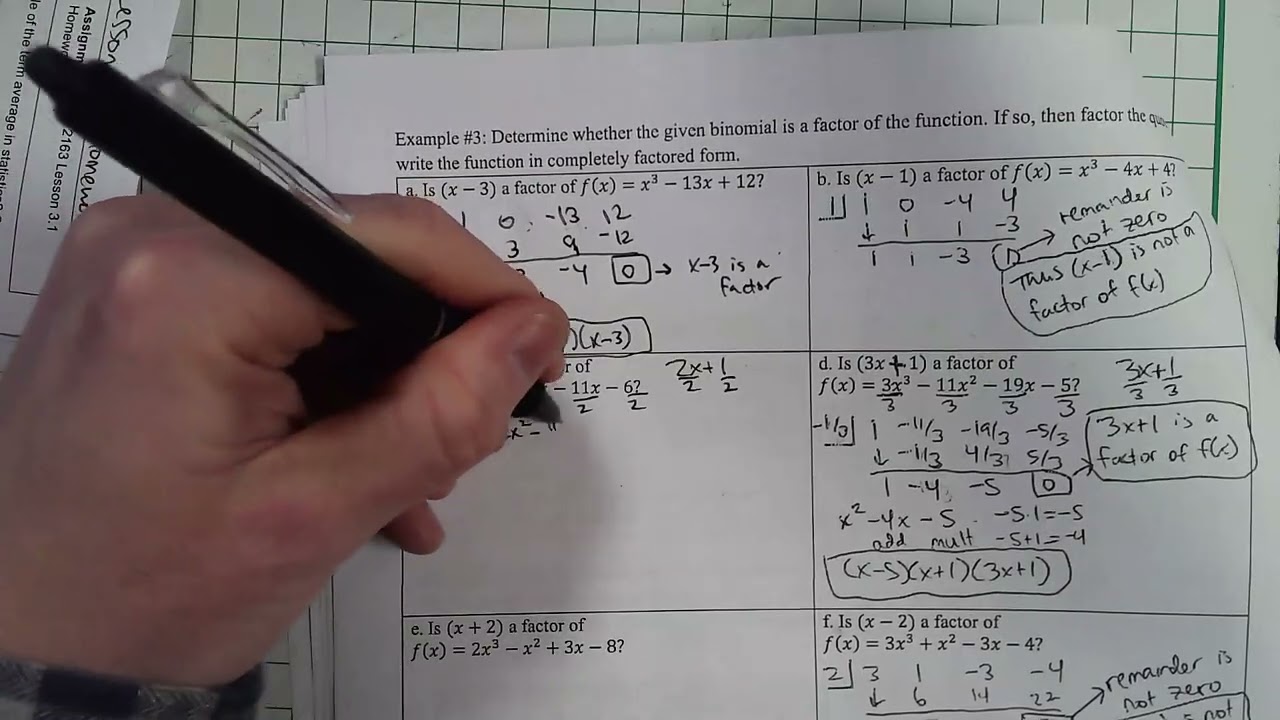 Assignm
Homew
2163 Lesson 3.1
average in
Example #3: Determine whether the given binomial is a factor of the function. If so, then factor the
write the function in completely factored form.
a. Is (x − 3) a factor of f(x) = x³ − 13x + 12?
1 0 -13 12
3 9 -12
-4 0 → x-3 is a
factor
)(x-3)
b. Is (x − 1) a factor of f(x) = x³ − 4x + 4?
1 1 0 -4 4
↓ 1 1 -3
1 1 -3 1 → remainder is
not zero
Thus (x-1) is not a
factor of f(x)
r of
− 11x − 6?
2 2
2x+1
2 2
x² - 11
d. Is (3x + 1) a factor of
f(x) = 3x³ − 11x² − 19x − 5?
3 3 3 3
3x+1
3 3
-1/3 1 -11/3 -19/3 -5/3
↓ -1/3 4/3 5/3
1 -4 -5 0
3x+1 is a
factor of f(x)
x² -4x -5 -5·1=-5
add mult -5+1=-4
(x-5)(x+1)(3x+1)
e. Is (x + 2) a factor of
f(x) = 2x³ − x² + 3x − 8?
f. Is (x − 2) a factor of
f(x) = 3x³ + x² − 3x − 4?
2 3 1 -3 -4
↓ 6 14 22
remainder is
not zero
not